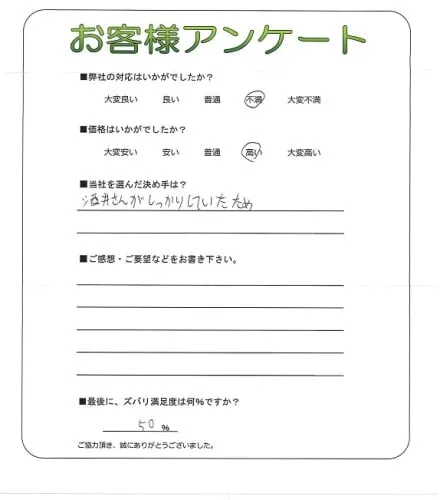 お客様アンケート
■弊社の対応はいかがでしたか？
大変良い 良い 普通 不満 大変不満
■価格はいかがでしたか？
大変安い 安い 普通 高い 大変高い
■当社を選んだ決め手は？
酒井さんがしっかりしていたため
■ご感想・ご要望などをお書き下さい。
■最後に、ズバリ満足度は何%ですか？
50 %
ご協力頂き、誠にありがとうございました。